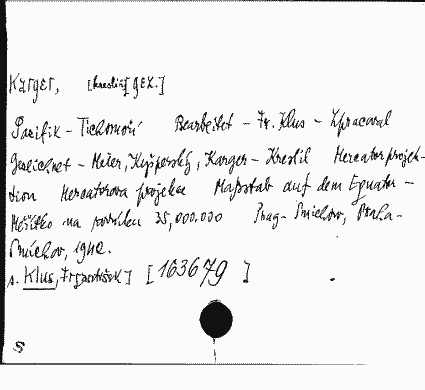 Karger, [kreslící gez.]
Pacifik - Tichomoří Bearbeitet - Fr. Klus - Zpracoval
Gezeichnet - Meier, Kyšperský, Karger - Kreslil Mercatorprojek-
tion Mercatorova projekce Maßstab auf dem Equator -
Měřítko na rovníku 35,000.000 Prag - Smichov, Praha -
Smíchov, 1942.
s. Klus, Fr[antišek] [163679]
S